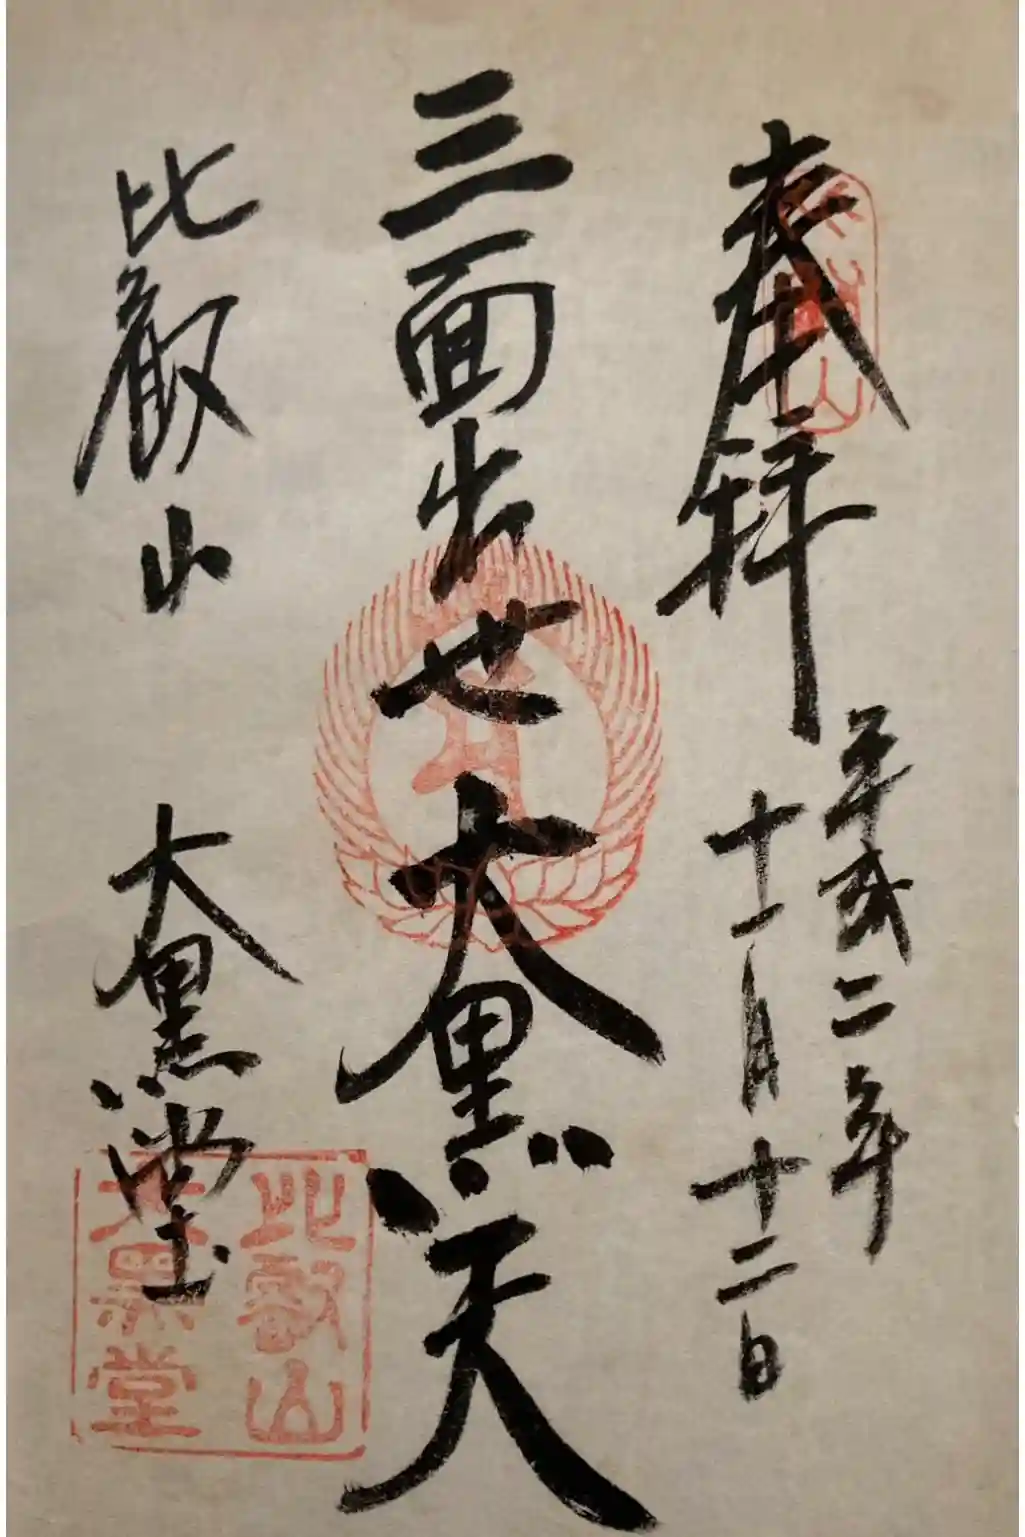 奉拝
平成二年
十一月十二日
三面出世大黒天
比叡山
大黒堂
比叡山
大黒堂